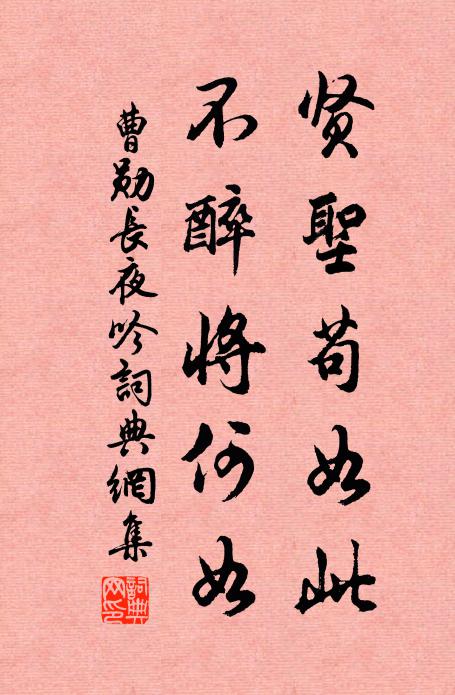 贤聖苟如此
不醉將何如
曹勛長夜吟詞典網集
詞典网印